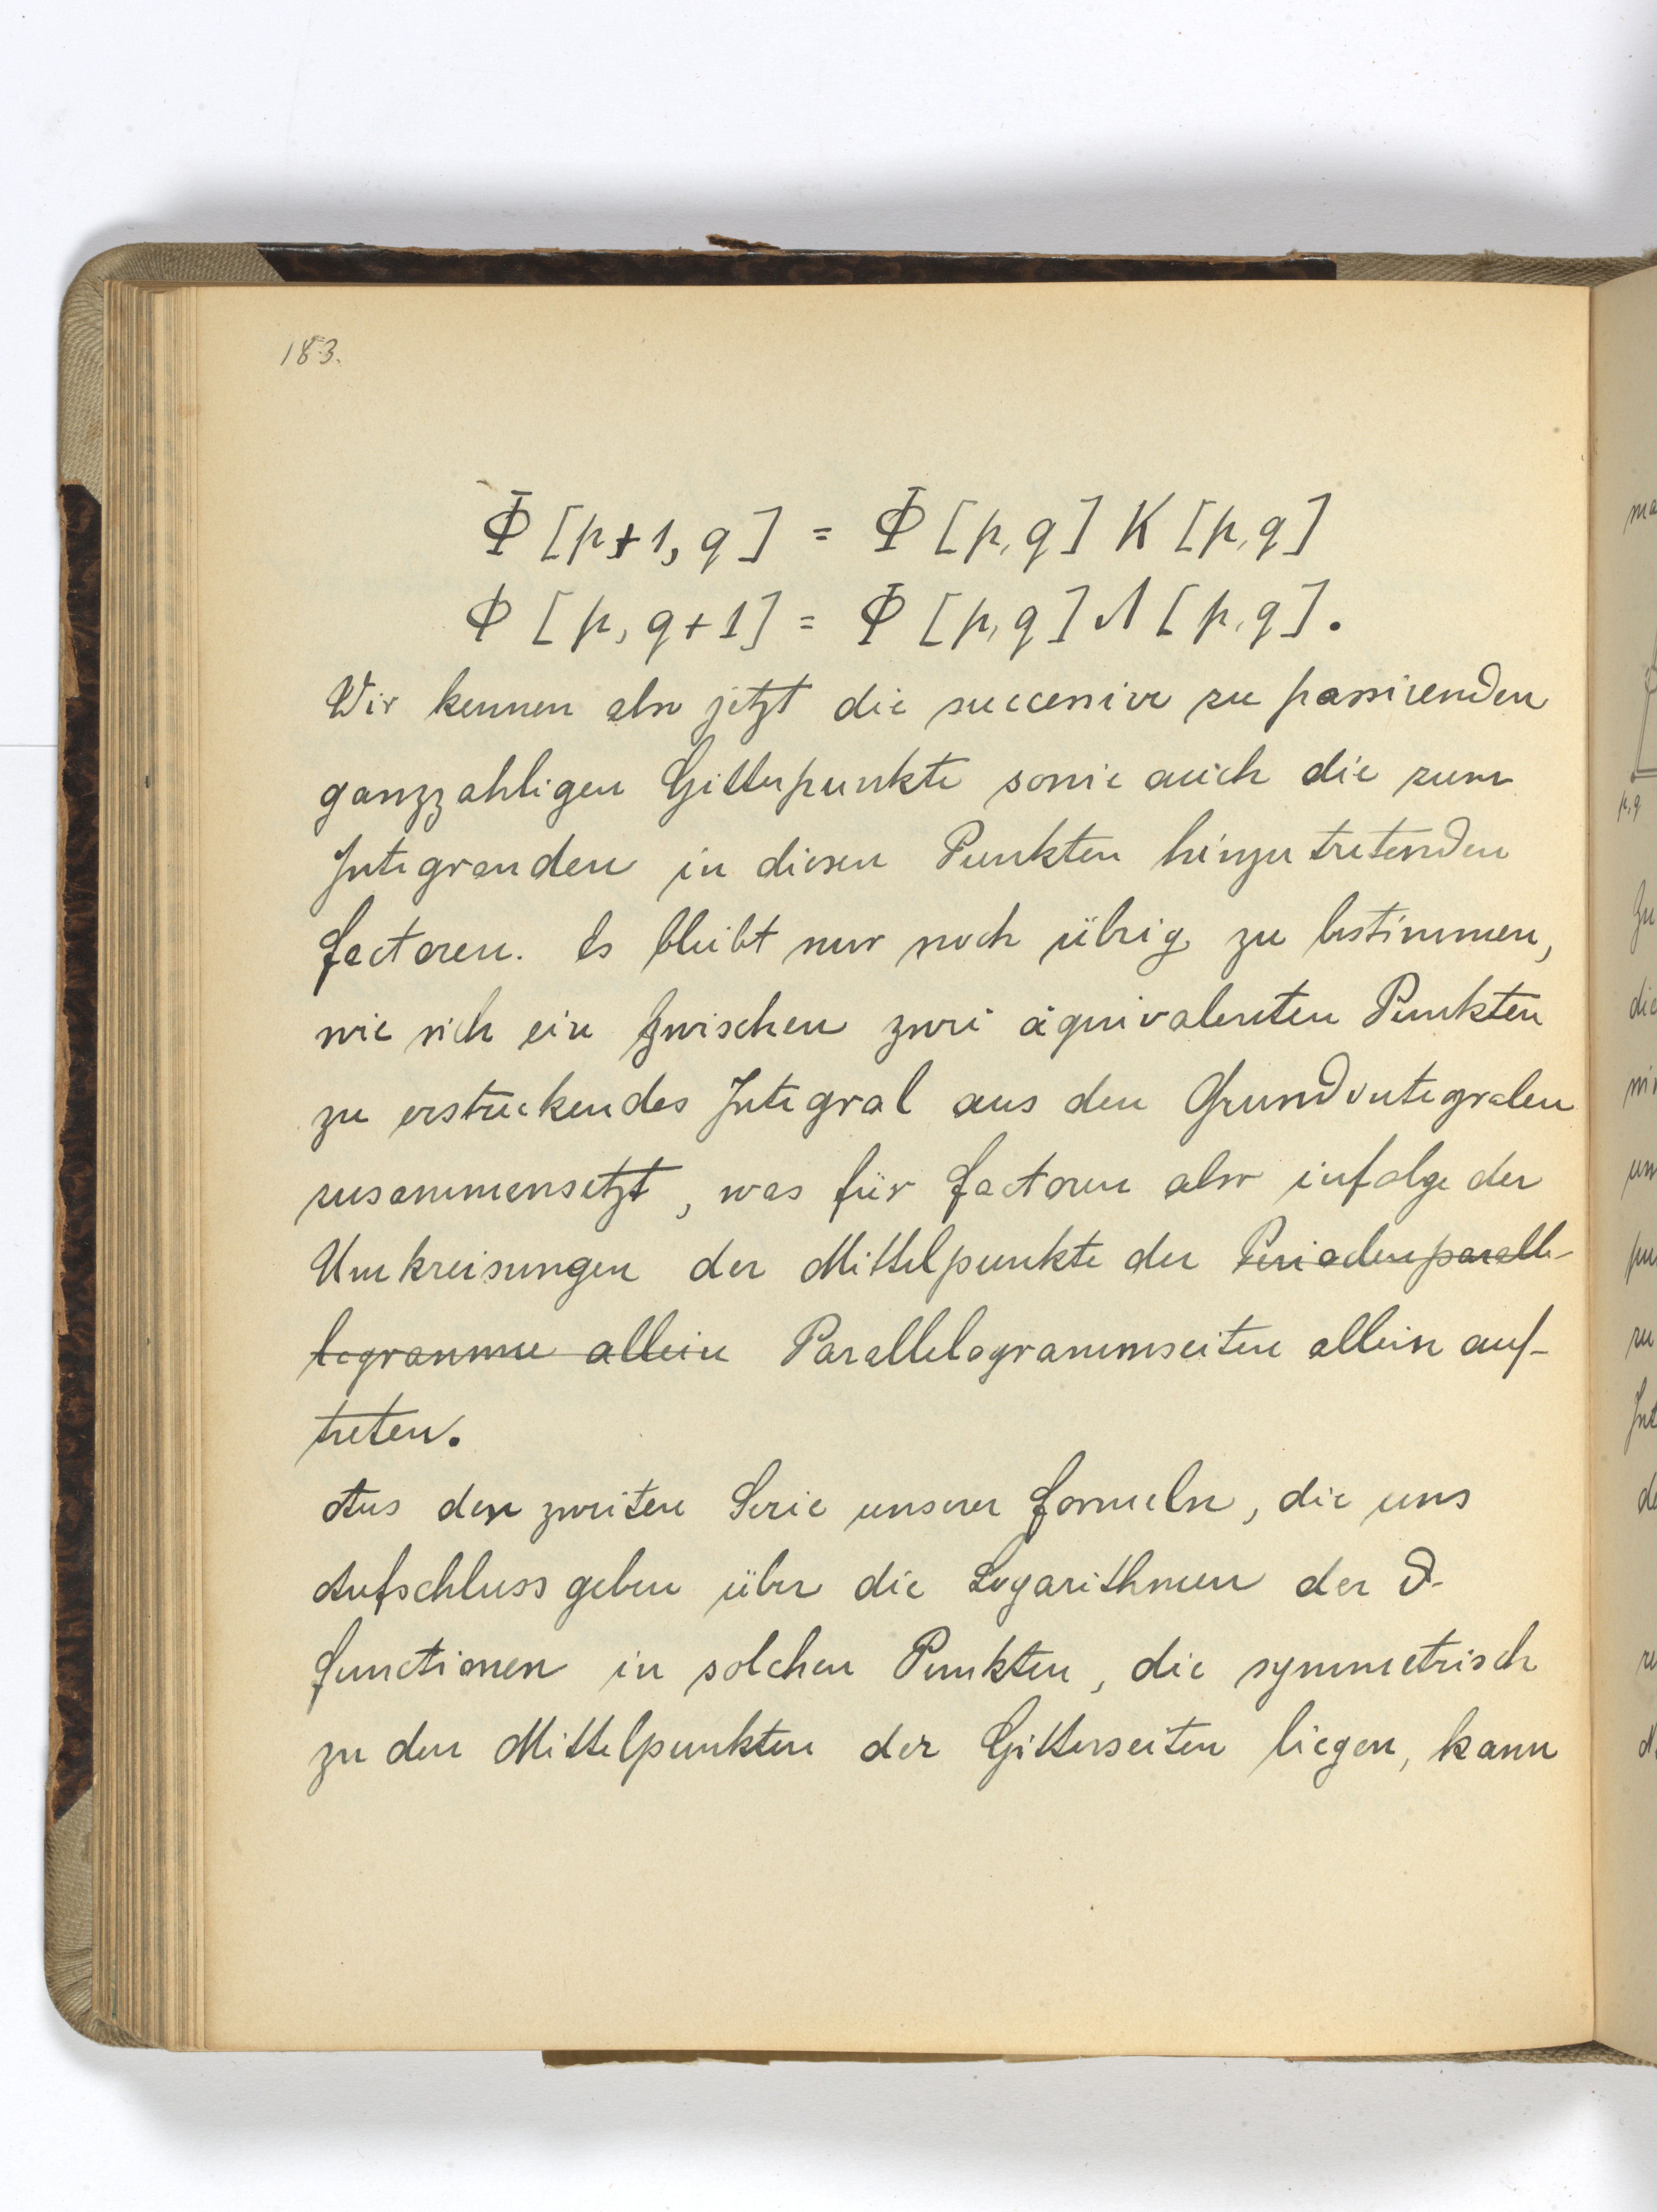 183.
Φ [p+1, q] = Φ [p, q] K [p, q]
Φ [p, q+1] = Φ [p, q] Λ [p, q].
Wir kennen also jetzt die successive zu passirenden
ganzzahligen Gitterpunkte sowie auch die zum
Integranden in diesen Punkten hinzutretenden
Factoren. Es bleibt nur noch übrig zu bestimmen,
wie sich ein zwischen zwei äquivalenten Punkten
zu erstreckendes Integral aus den Grundintegralen
zusammensetzt, was für Factoren also infolge der
Umkreisungen der Mittelpunkte der Periodenparalle-
logramme allein Parallelogrammseiten allein auf-
treten.
Aus der zweiten Serie unserer Formeln, die uns
Aufschluss geben über die Logarithmen der ϑ-
functionen in solchen Punkten, die symmetrisch
zu den Mittelpunkten der Gitterseiten liegen, kann